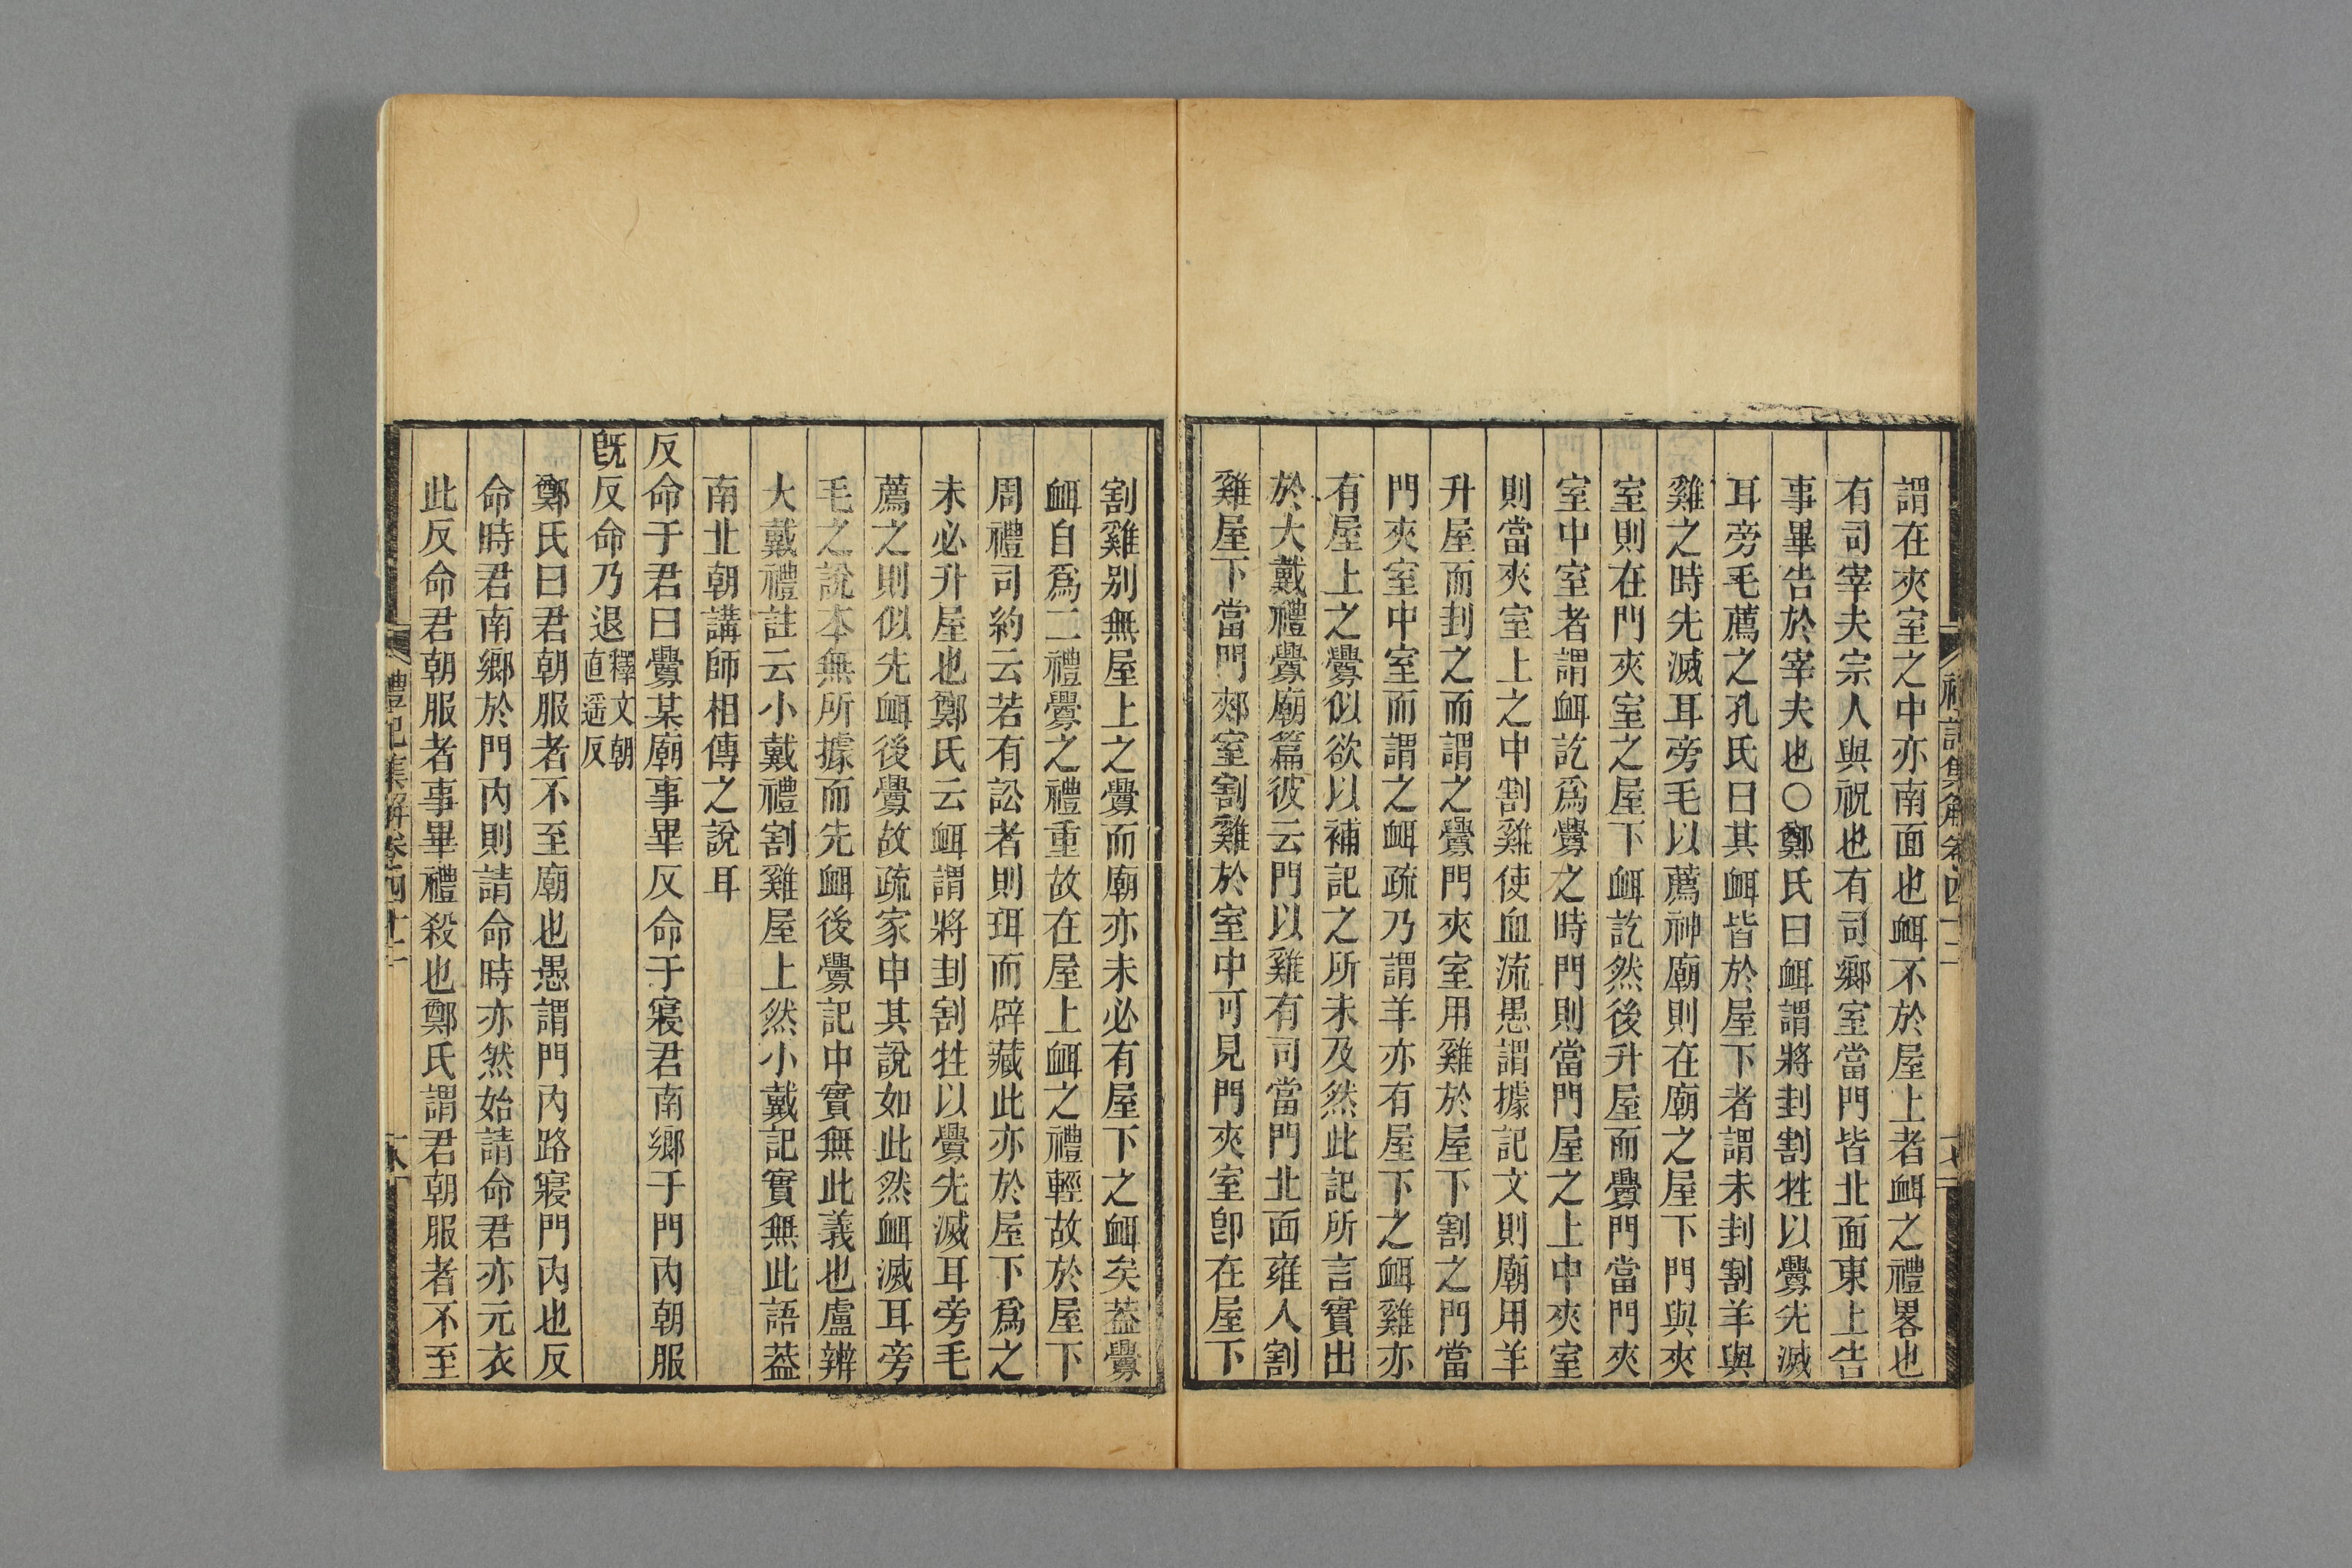 謂在夾室之中亦南面也衈不於屋上者衈之禮畧也
有司宰夫宗人與祝也有司鄉室當門皆北面東上告
事畢告於宰夫也○鄭氏曰衈謂將刲割牲以釁先滅
耳旁毛薦之孔氏曰其衈皆於屋下者謂未刲割羊與
雞之時先滅耳旁毛以薦神廟則在廟之屋下門與夾
室則在門夾室之屋下衈訖然後升屋而釁門當門夾
室中室者謂衈訖爲釁之時門則當門屋之上中夾室
則當夾室上之中割雞使血流愚謂據記文則廟用羊
升屋而刲之而謂之釁門夾室用雞於屋下割之門當
門夾室中室而謂之衈疏乃謂羊亦有屋下之衈雞亦
有屋上之釁似欲以補記之所未及然此記所言實出
於大戴禮釁廟篇彼云門以雞有司當門北面雍人割
雞屋下當門郟室割雞於室中可見門夾室卽在屋下
割雞別無屋上之釁而廟亦未必有屋下之衈矣葢釁
衈自爲二禮釁之禮重故在屋上衈之禮輕故於屋下
周禮司約云若有訟者則珥而辟藏此亦於屋下爲之
未必升屋也鄭氏云衈謂將刲割牲以釁先滅耳旁毛
薦之則似先衈後釁故疏家申其說如此然衈滅耳旁
毛之說本無所據而先衈後釁記中實無此義也盧辨
大戴禮註云小戴禮割雞屋上然小戴記實無此語葢
南北朝講師相傳之說耳
反命于君曰釁某廟事畢反命于寢君南鄉于門內朝服
旣反命乃退釋文朝直遥反
鄭氏曰君朝服者不至廟也愚謂門內路寢門內也反
命時君南鄉於門內則請命時亦然始請命君亦元衣
此反命君朝服者事畢禮殺也鄭氏謂君朝服者不至
禮記集解卷四十二